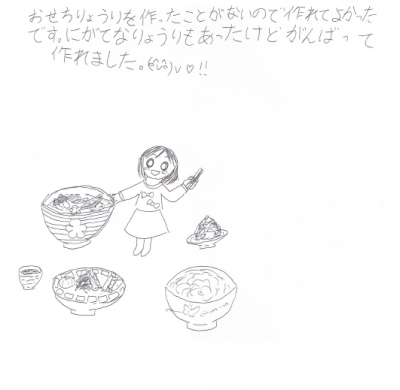 おせちりょうりを作ったことがないので作れてよかった
です。にがてなりょうりもあったけどがんばって
作れました。(^^)v♡!!